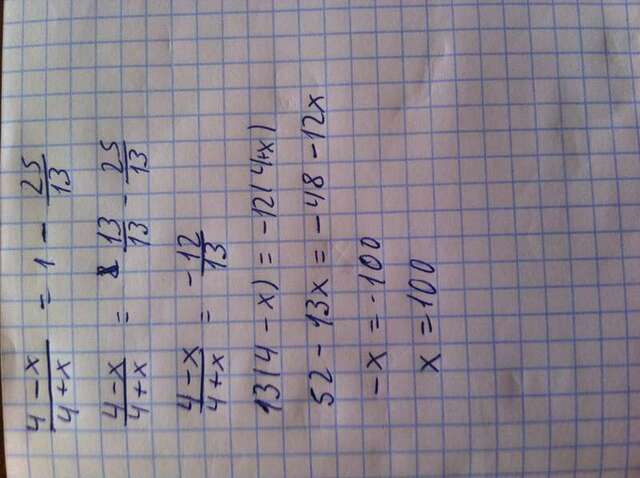 (4-x)/(4+x) = 1 - 25/13
(4-x)/(4+x) = 13/13 - 25/13
(4-x)/(4+x) = -12/13
13(4-x) = -12(4+x)
52 - 13x = -48 - 12x
-x = -100
x = 100